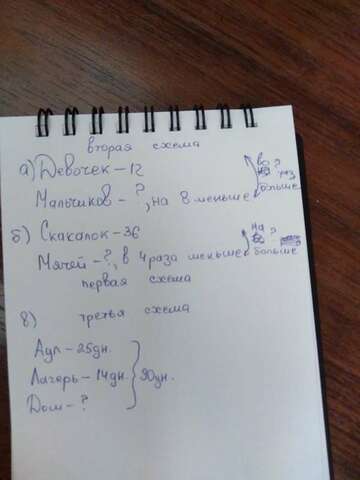 вторая схема
а) Девочек - 12
Мальчиков - ?, на 8 меньше
во ? раз
больше
б) Скакалок - 36
Мячей - ?, в 4 раза меньше
на ?
больше
первая схема
в) третья схема
Адл - 25дн.
Лагерь - 14дн.
Дом - ?
90дн.